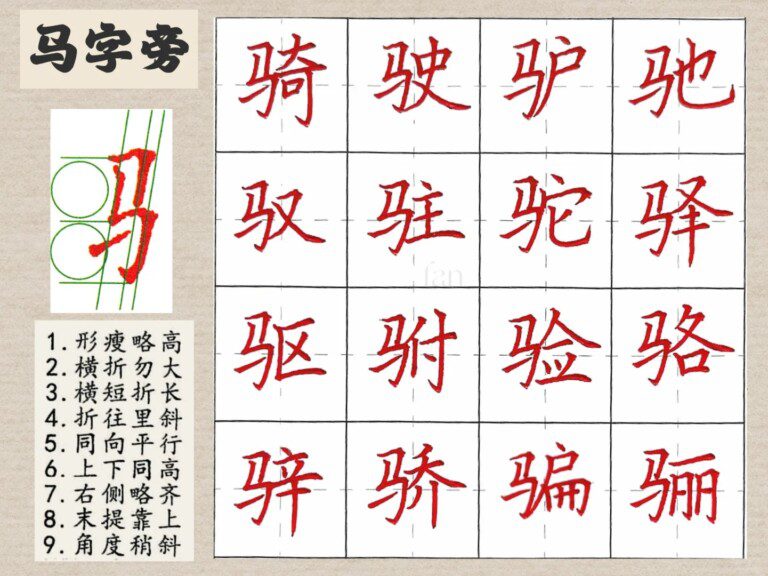 马字旁
马
1.形瘦略高
2.横折勿大
3.横短折长
4.折往里斜
5.同向平行
6.上下同高
7.右侧略齐
8.末提靠上
9.角度稍斜
骑驶驴驰
驭驻驼驿
驱驸验骆
骍骄骗骊
fan